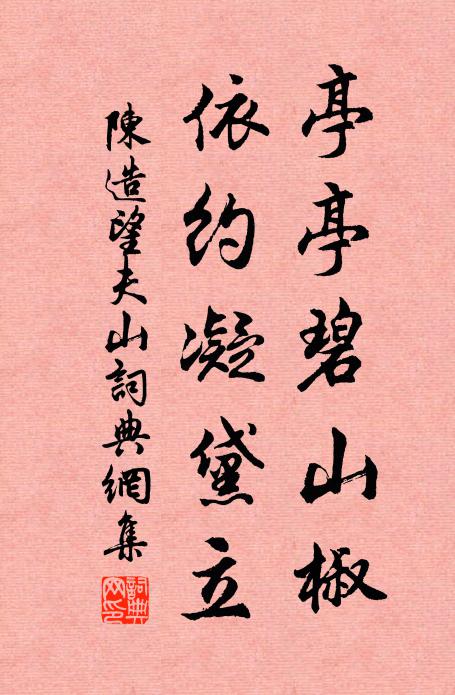 亭亭碧山椒
依約凝黛立
陳造望夫山詞典網集
詞典網印